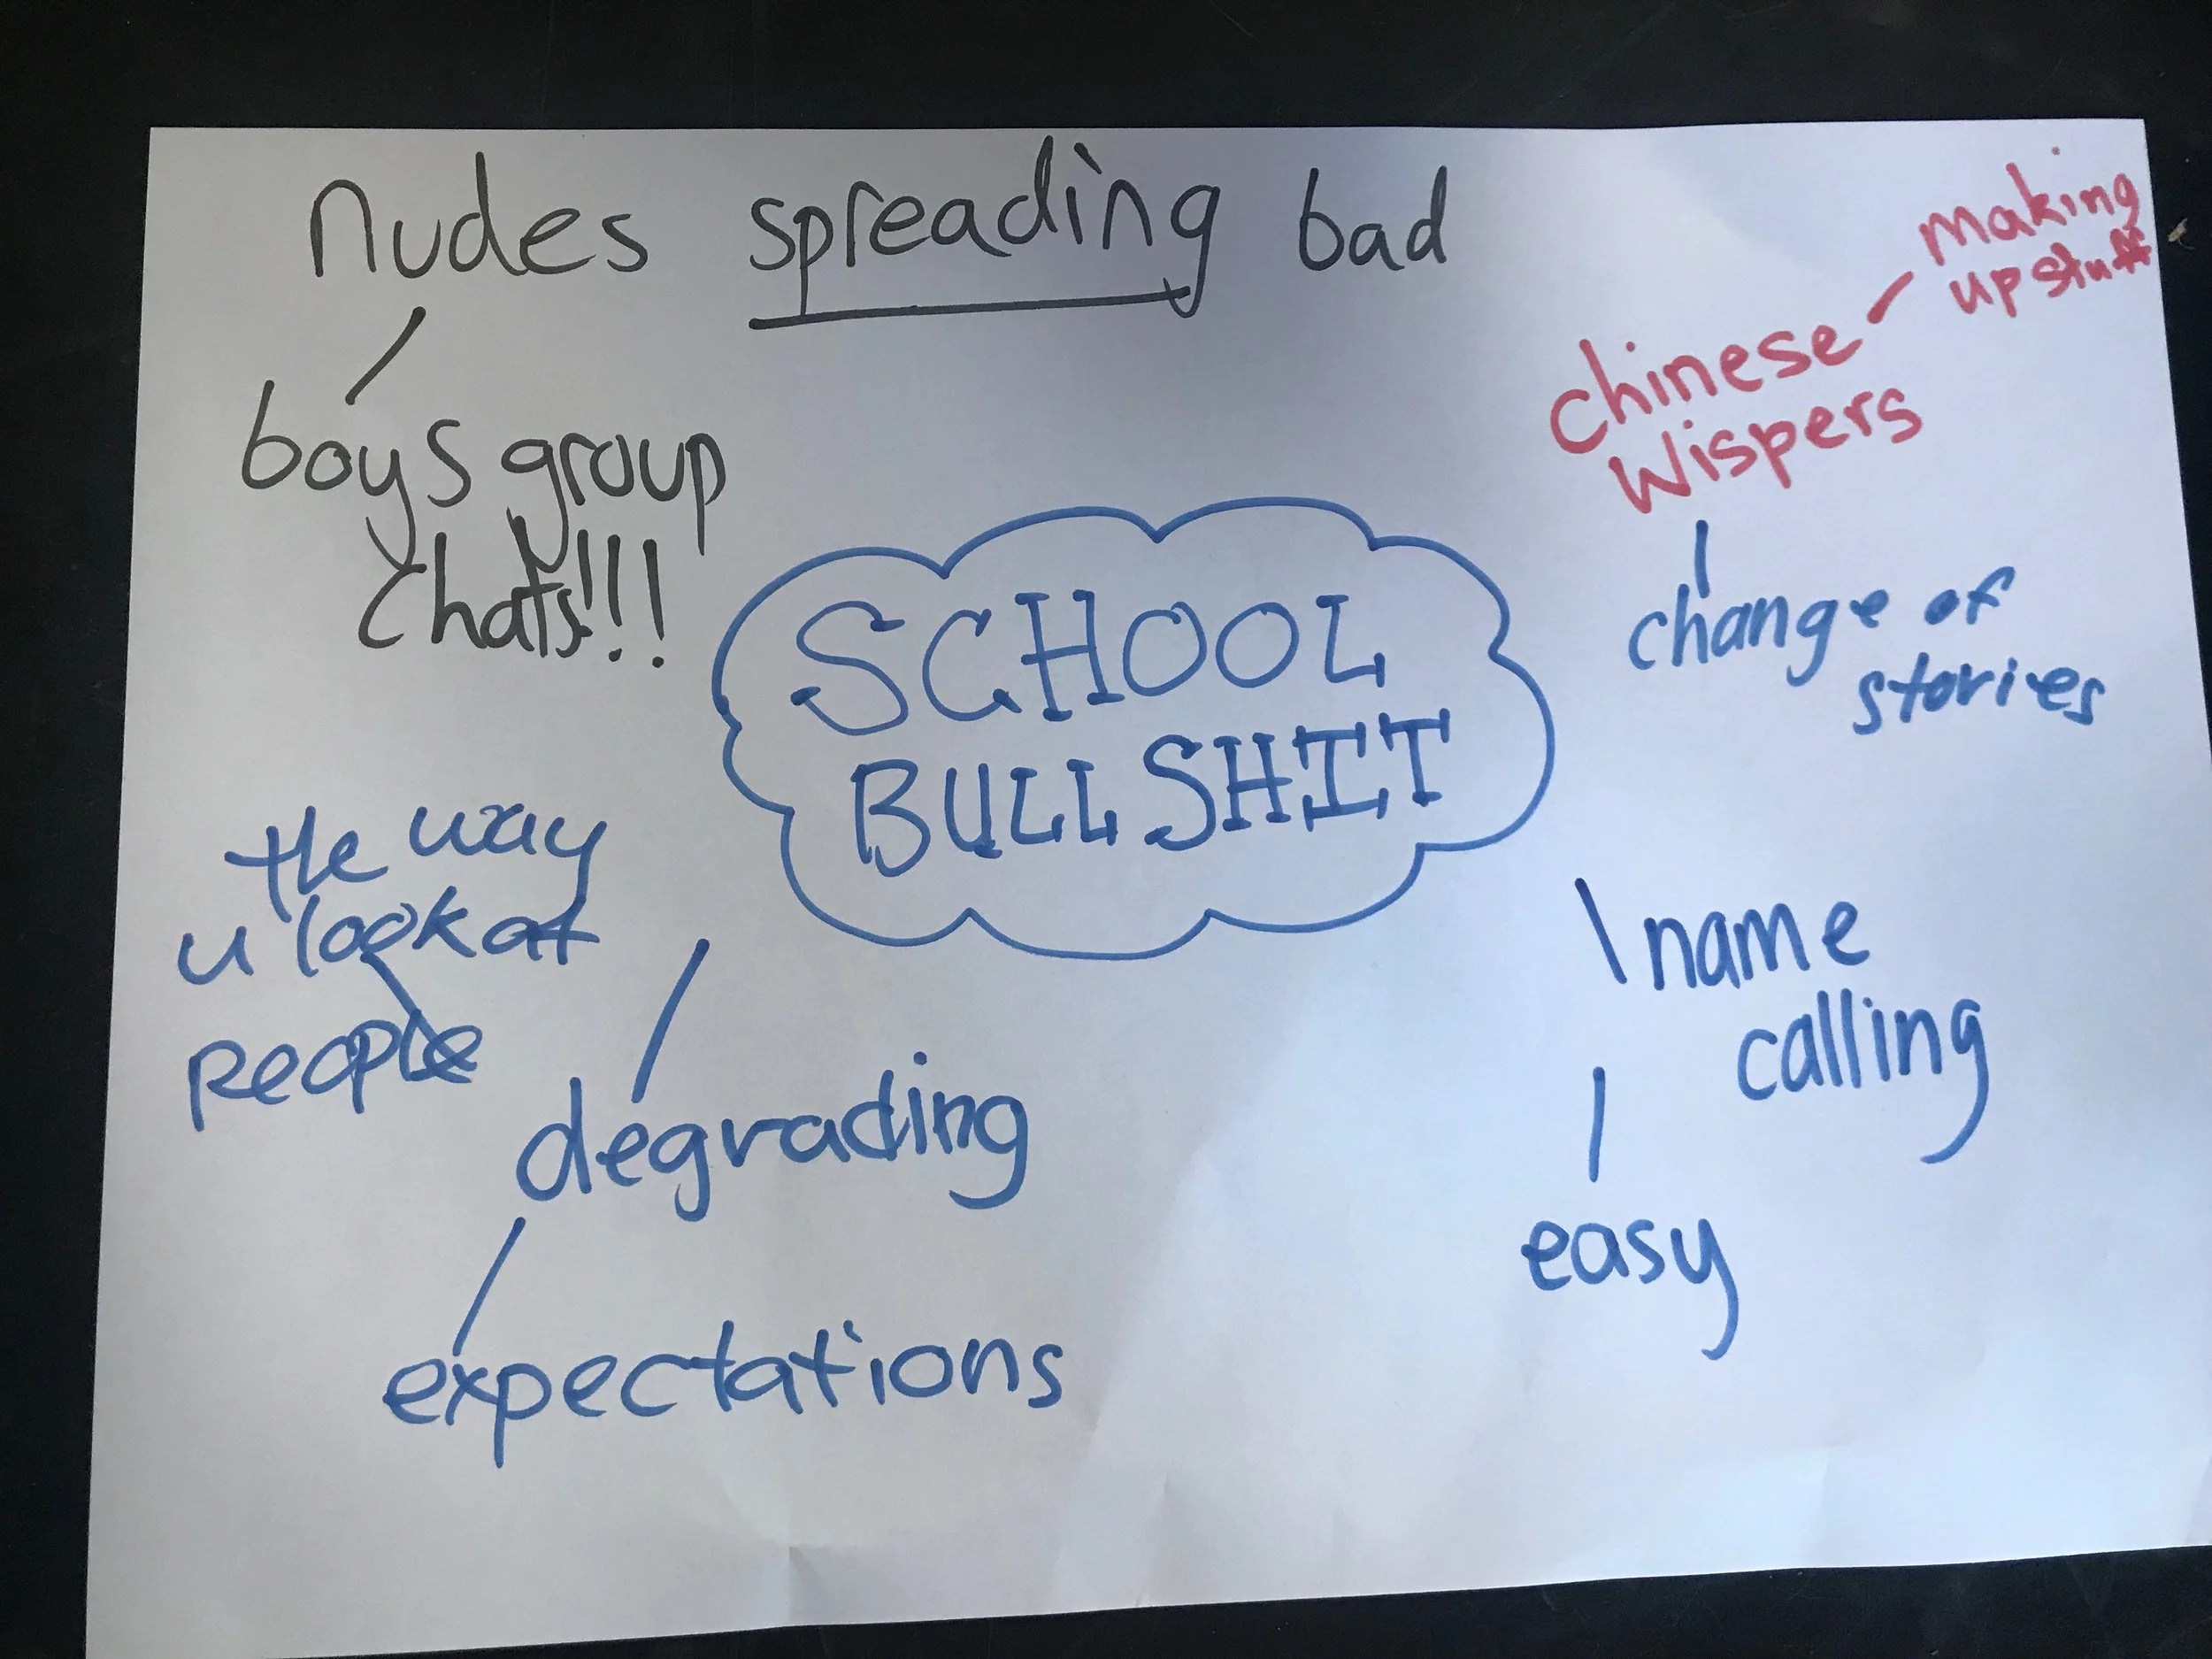 nudes spreading bad
boys group
chats!!!
making
up stuff
chinese
wispers
change of
stories
SCHOOL
BULLSHIT
the way
u look at
people
degrading
expectations
name
calling
easy